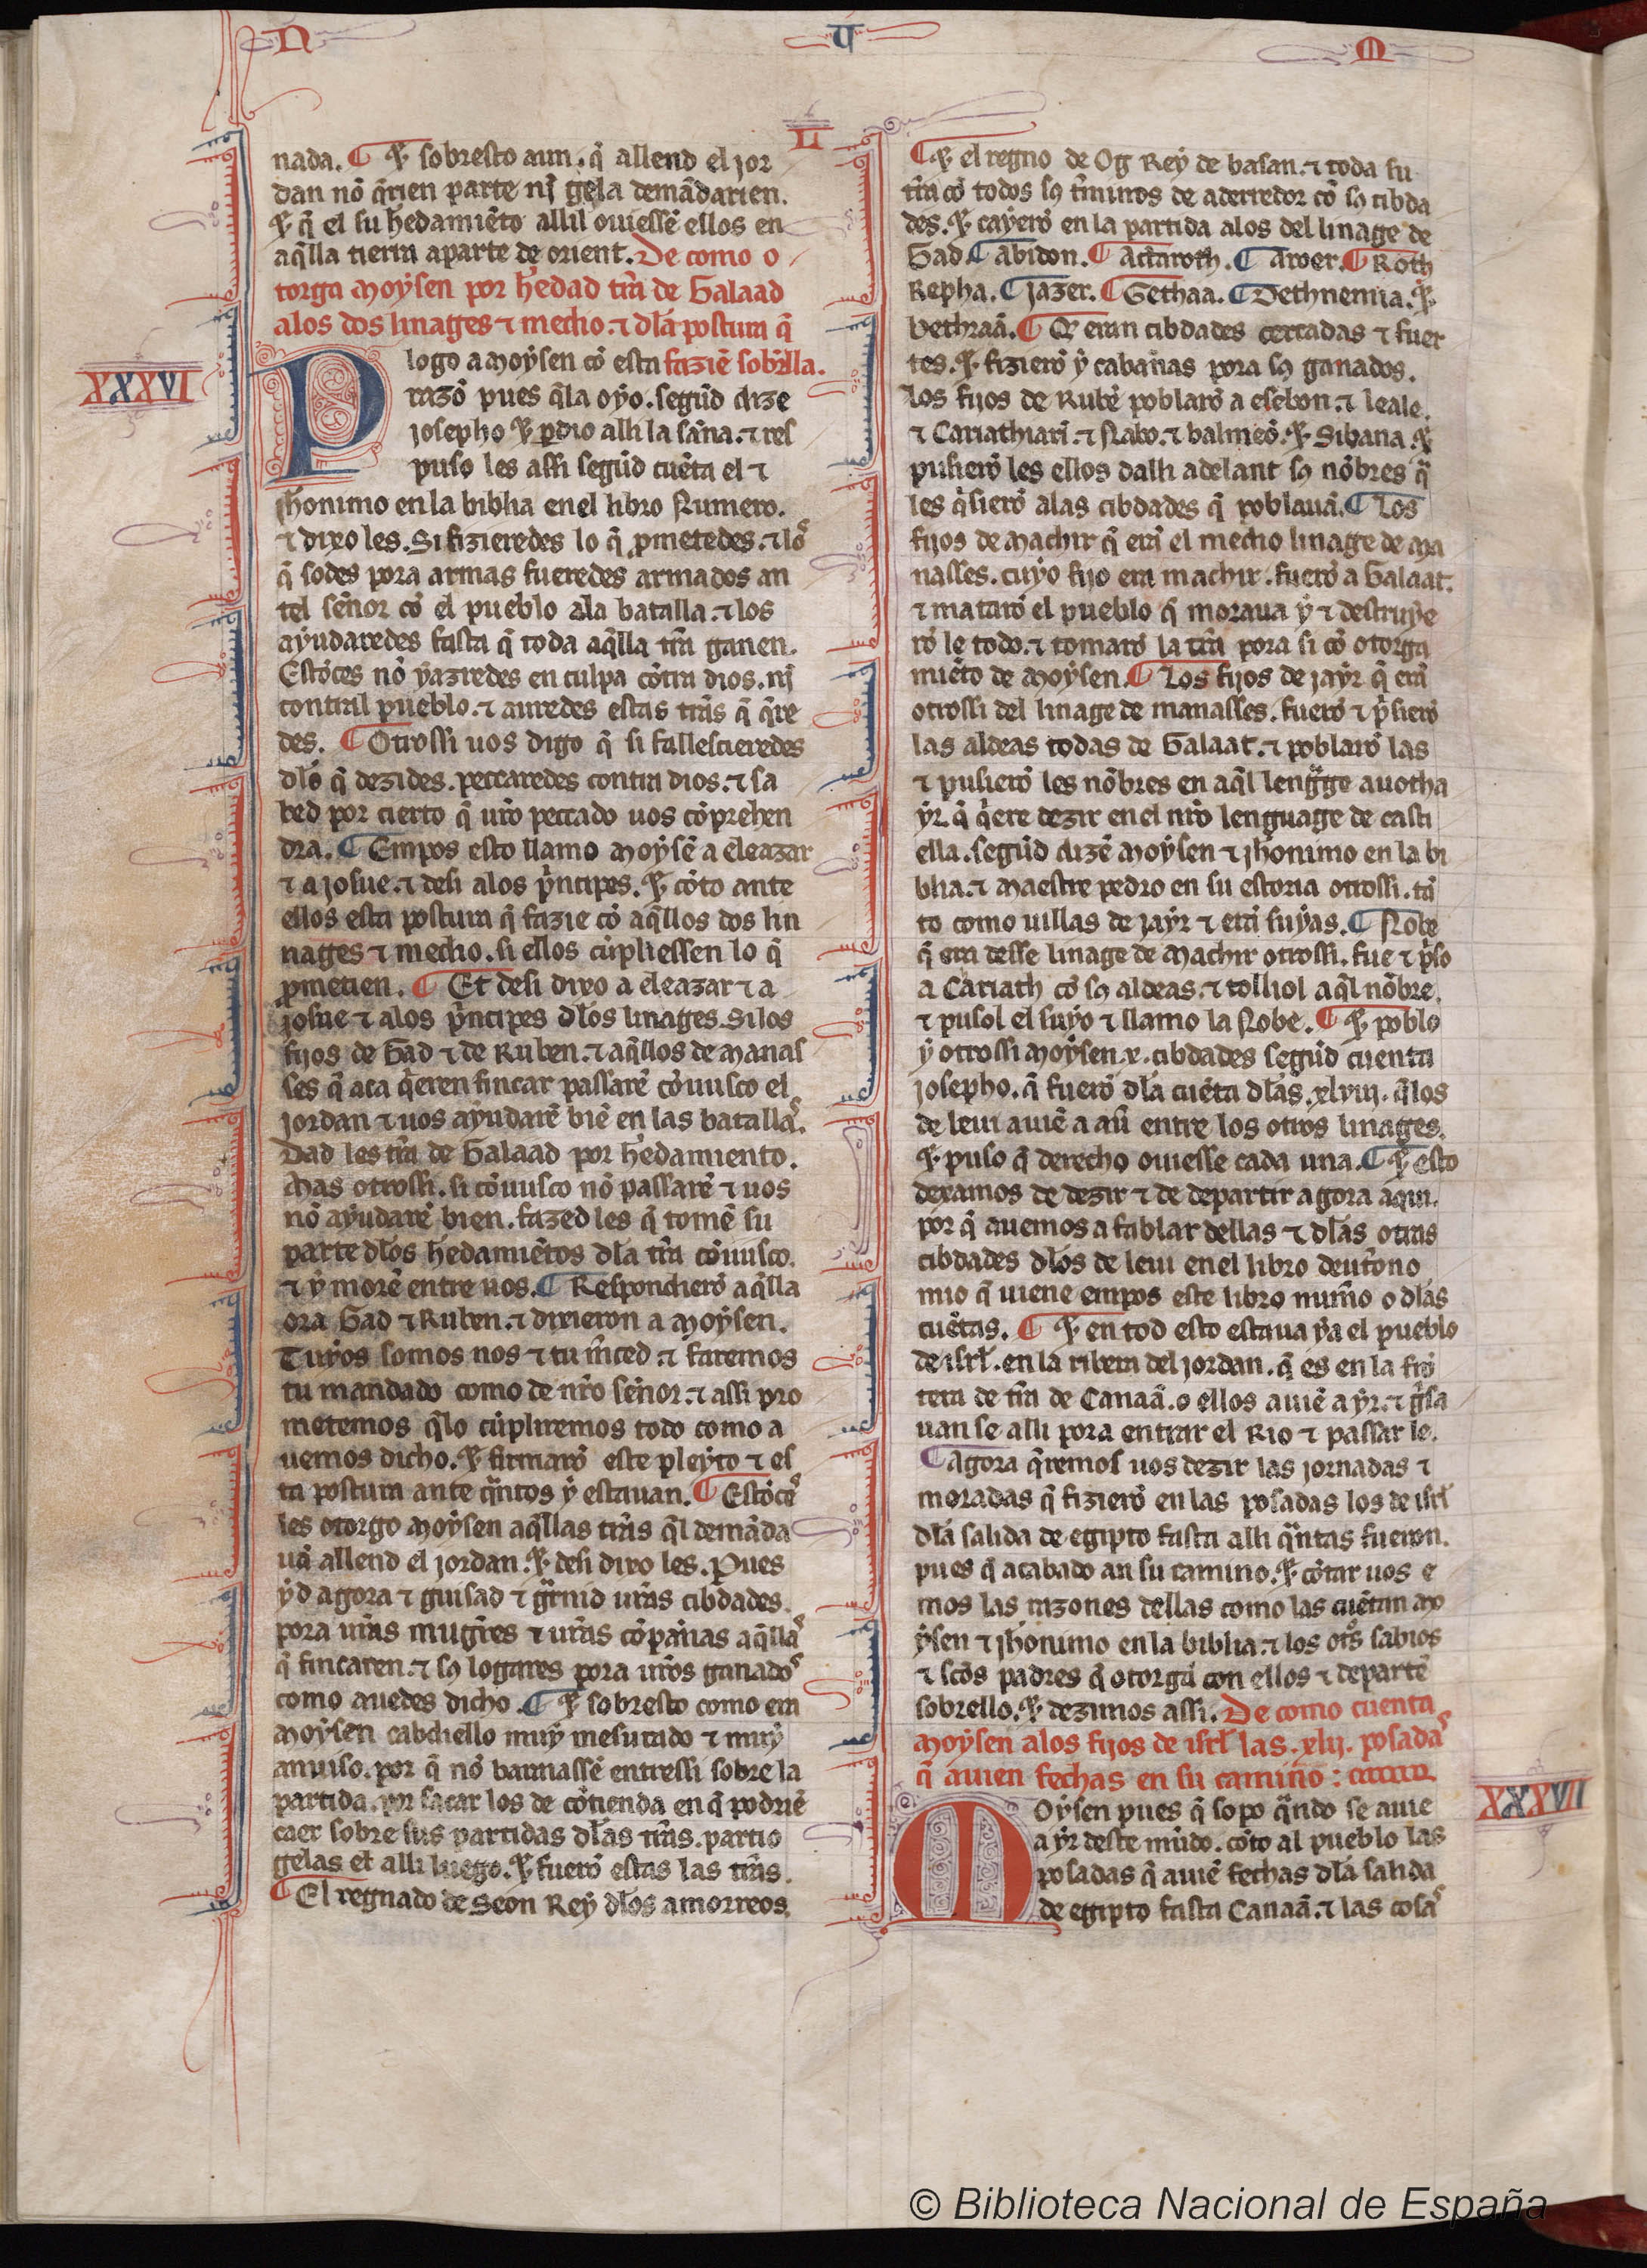 N U M
L
nada. ¶ ⁊ sobresto aun. q̃ allend el jor
dan nõ q̃rien parte nj̃ gela demãdarien.
⁊ q̃ el su hedamiẽto allil ouiessẽ ellos en
aq̃lla tierra aparte de orient. De como o
torga moẏsen por hedad tr̃ra de Galaad
alos dos linages ⁊ medio. ⁊ dła postura q̃
faziẽ sobrella.
XXXVI
Plogo a moẏsen cõ esta
razõ pues q̃la oẏo. segũd dize
josepho ⁊ p̱dio alli la saña. ⁊ res
puso les assi segũd cuẽta el ⁊
jħonimo en la biblia en el libro Numero.
⁊ dixo les. Si fizieredes lo q̃ p̱metedes. ⁊ los
q̃ sodes pora armas fueredes armados an
tel señor cõ el pueblo ala batalla. ⁊ los
aẏudaredes fasta q̃ toda aq̃lla tr̃ra ganen.
Estõces nõ ẏazredes en culpa cõtra dios. nj̃
contral pueblo. ⁊ auredes estas tr̃ras q̃ q̃re
des. ¶ Otrossi uos digo q̃ si fallescieredes
dło q̃ dezides. peccaredes contra dios. ⁊ sa
bed por cierto q̃ ur̃o peccado uos cõprehen
dra. ¶ Empos esto llamo moẏsẽ a eleazar
⁊ a josue. ⁊ desi alos p̃ncipes. ⁊ cõto ante
ellos esta postura q̃ fazie cõ aq̃llos dos lin
nages ⁊ medio. si ellos cũpliessen lo q̃
p̱metien. ¶ Et desi dixo a eleazar ⁊ a
josue ⁊ alos p̃ncipes dłos linages. Si los
fijos de Gad ⁊ de Ruben. ⁊ aq̃llos de manas
ses q̃ aca q̃eren fincar passarẽ cõuusco el
jordan ⁊ uos aẏudarẽ biẽ en las batallas.
Dad les tr̃ra de Galaad por hedamiento.
Mas otrossi. si cõuusco nõ passarẽ ⁊ uos
nõ aẏudarẽ bien. fazed les q̃ tomẽ su
parte dłos hedamiẽtos dła tr̃ra cõuusco.
⁊ ẏ morẽ entre uos. ¶ Respondierõ aq̃lla
ora Gad ⁊ Ruben. ⁊ dixieron a moẏsen.
Tuẏos somos nos ⁊ tu m̃ced. ⁊ faremos
tu mandado como de nr̃o señor. ⁊ assi pro
metemos q̃lo cũpliremos todo como a
uemos dicho. ⁊ firmarõ este pleẏto ⁊ es
ta postura ante q̃ntos ẏ estauan. ¶ Estõces
les otorgo moẏsen aq̃llas tr̃ras q̃l demãda
uã allend el jordan. ⁊ desi dixo les. Pues
ẏd agora ⁊ guisad ⁊ g̃rnid ur̃as cibdades
pora ur̃as mugr̃es ⁊ ur̃as cõpañas aq̃llas
q̃ fincaren. ⁊ sꝯ logares pora ur̃os ganados
como auedes dicho. ¶ ⁊ sobresto como era
moẏsen cabdiello muẏ mesurado ⁊ muẏ
anuiso. por q̃ nõ baraiassẽ entressi sobre la
partida. por sacar los de cõtienda en q̃ podriẽ
caer sobre sus partidas dłas tr̃ras. partio
gelas el alli luego. ⁊ fuerõ estas las tr̃ras.
¶ El regnado de Seon Reẏ dłos amorreos.
¶ ⁊ el regno de Og Reẏ de basan. ⁊ toda su
tr̃ra cõ todos sꝯ t̃minos de aderredor cõ sꝯ cibda
des. ⁊ caẏerõ en la partida alos del linage de
Gad. ¶ abidon. ¶ actaroth. ¶ aroer. ¶ Roth
Repha. ¶ jazer. ¶ Gethaa. ¶ Bethnemra. ⁊
bethraã. ¶ Q̃ eran cibdades cercadas ⁊ fuer
tes. ⁊ fizierõ ẏ cabañas pora sꝯ ganados.
Los fijos de Rubẽ poblarõ a esebon. ⁊ leale.
⁊ Cariathiarĩ. ⁊ Nabo. ⁊ balmeõ. ⁊ Sibana. ⁊
pusierõ les ellos dalli adelant sꝯ nõbres q̃
les q̃sierõ alas cibdades q̃ poblauã. ¶ Los
fijos de machir q̃ erã el medio linage de ma
nasses. cuẏo fijo era machir. fuerõ a Galaat.
⁊ matarõ el pueblo q̃ moraua ẏ ⁊ destruẏe
rõ le todo. ⁊ tomarõ la tr̃ra pora si cõ otorga
miẽto de moẏsen. ¶ Los fijos de jaẏr q̃ erã
otrossi del linage de manasses. fuerõ ⁊ p̃sierõ
las aldeas todas de Galaat. ⁊ poblarõ las
⁊ pusierõ les nõbres en aq̃l leng̃ge auotha
ẏr. q̃ q̃ere dezir en el nr̃o lenguage de casti
ella. segũd dizẽ moẏsen ⁊ jħonimo en la bi
blia. ⁊ maestre pedro en su estoria otrossi. tã
to como uillas de jaẏr ⁊ erã suẏas. ¶ Nobe
q̃ era desse linage de machir otrossi. fue ⁊ p̃so
a Cariath cõ sꝯ aldeas. ⁊ tolliol aq̃l nõbre.
⁊ pusol el suẏo ⁊ llamo la Nobe. ¶ ⁊ poblo
ẏ otrossi moẏsen. x. cibdades segũd cuenta
josepho. q̃ fuerõ dła cuẽta dłas. xlviij. q̃ los
de leui auiẽ a auer entre los otros linages.
⁊ puso q̃ derecho ouiesse cada una. ¶ ⁊ esto
dexamos de dezir ⁊ de departir agora aqui.
por q̃ auemos a fablar dellas ⁊ dłas otras
cibdades dłos de leui en el libro deut̃ono
mio q̃ uiene empos este libro num̃o o dłas
cuẽtas. ¶ ⁊ en tod esto estaua ẏa el pueblo
de isrł. en la ribera del jordan. q̃ es en la frõ
tera de tr̃ra de Canaã. o ellos auiẽ a ẏr. ⁊ g̃sa
uan se alli pora entrar el Rio ⁊ passar le.
¶ agora q̃remos uos dezir las jornadas ⁊
moradas q̃ fizierõ en las posadas los de isrł
dła salida de egipto fasta alli q̃ntas fueron.
pues q̃ acabado an su camino. ⁊ cõtar uos e
mos las razones dellas como las cuẽtan mo
ẏsen ⁊ jħonimo en la biblia. ⁊ los otr̃s sabios
⁊ sc̃os padres q̃ otorgã con ellos ⁊ departẽ
sobrello. ⁊ dezimos assi. De como cuenta
moẏsen alos fijos de isrł las. xlij. posadas
q̃ auien fechas en su camino:
XXXVII
Moẏsen pues q̃ sopo q̃ndo se auie
a ẏr deste mũdo. cõto al pueblo las
posadas q̃ auiẽ fechas dła salida
de egipto fasta Canaã. ⁊ las cosas
© Biblioteca Nacional de España